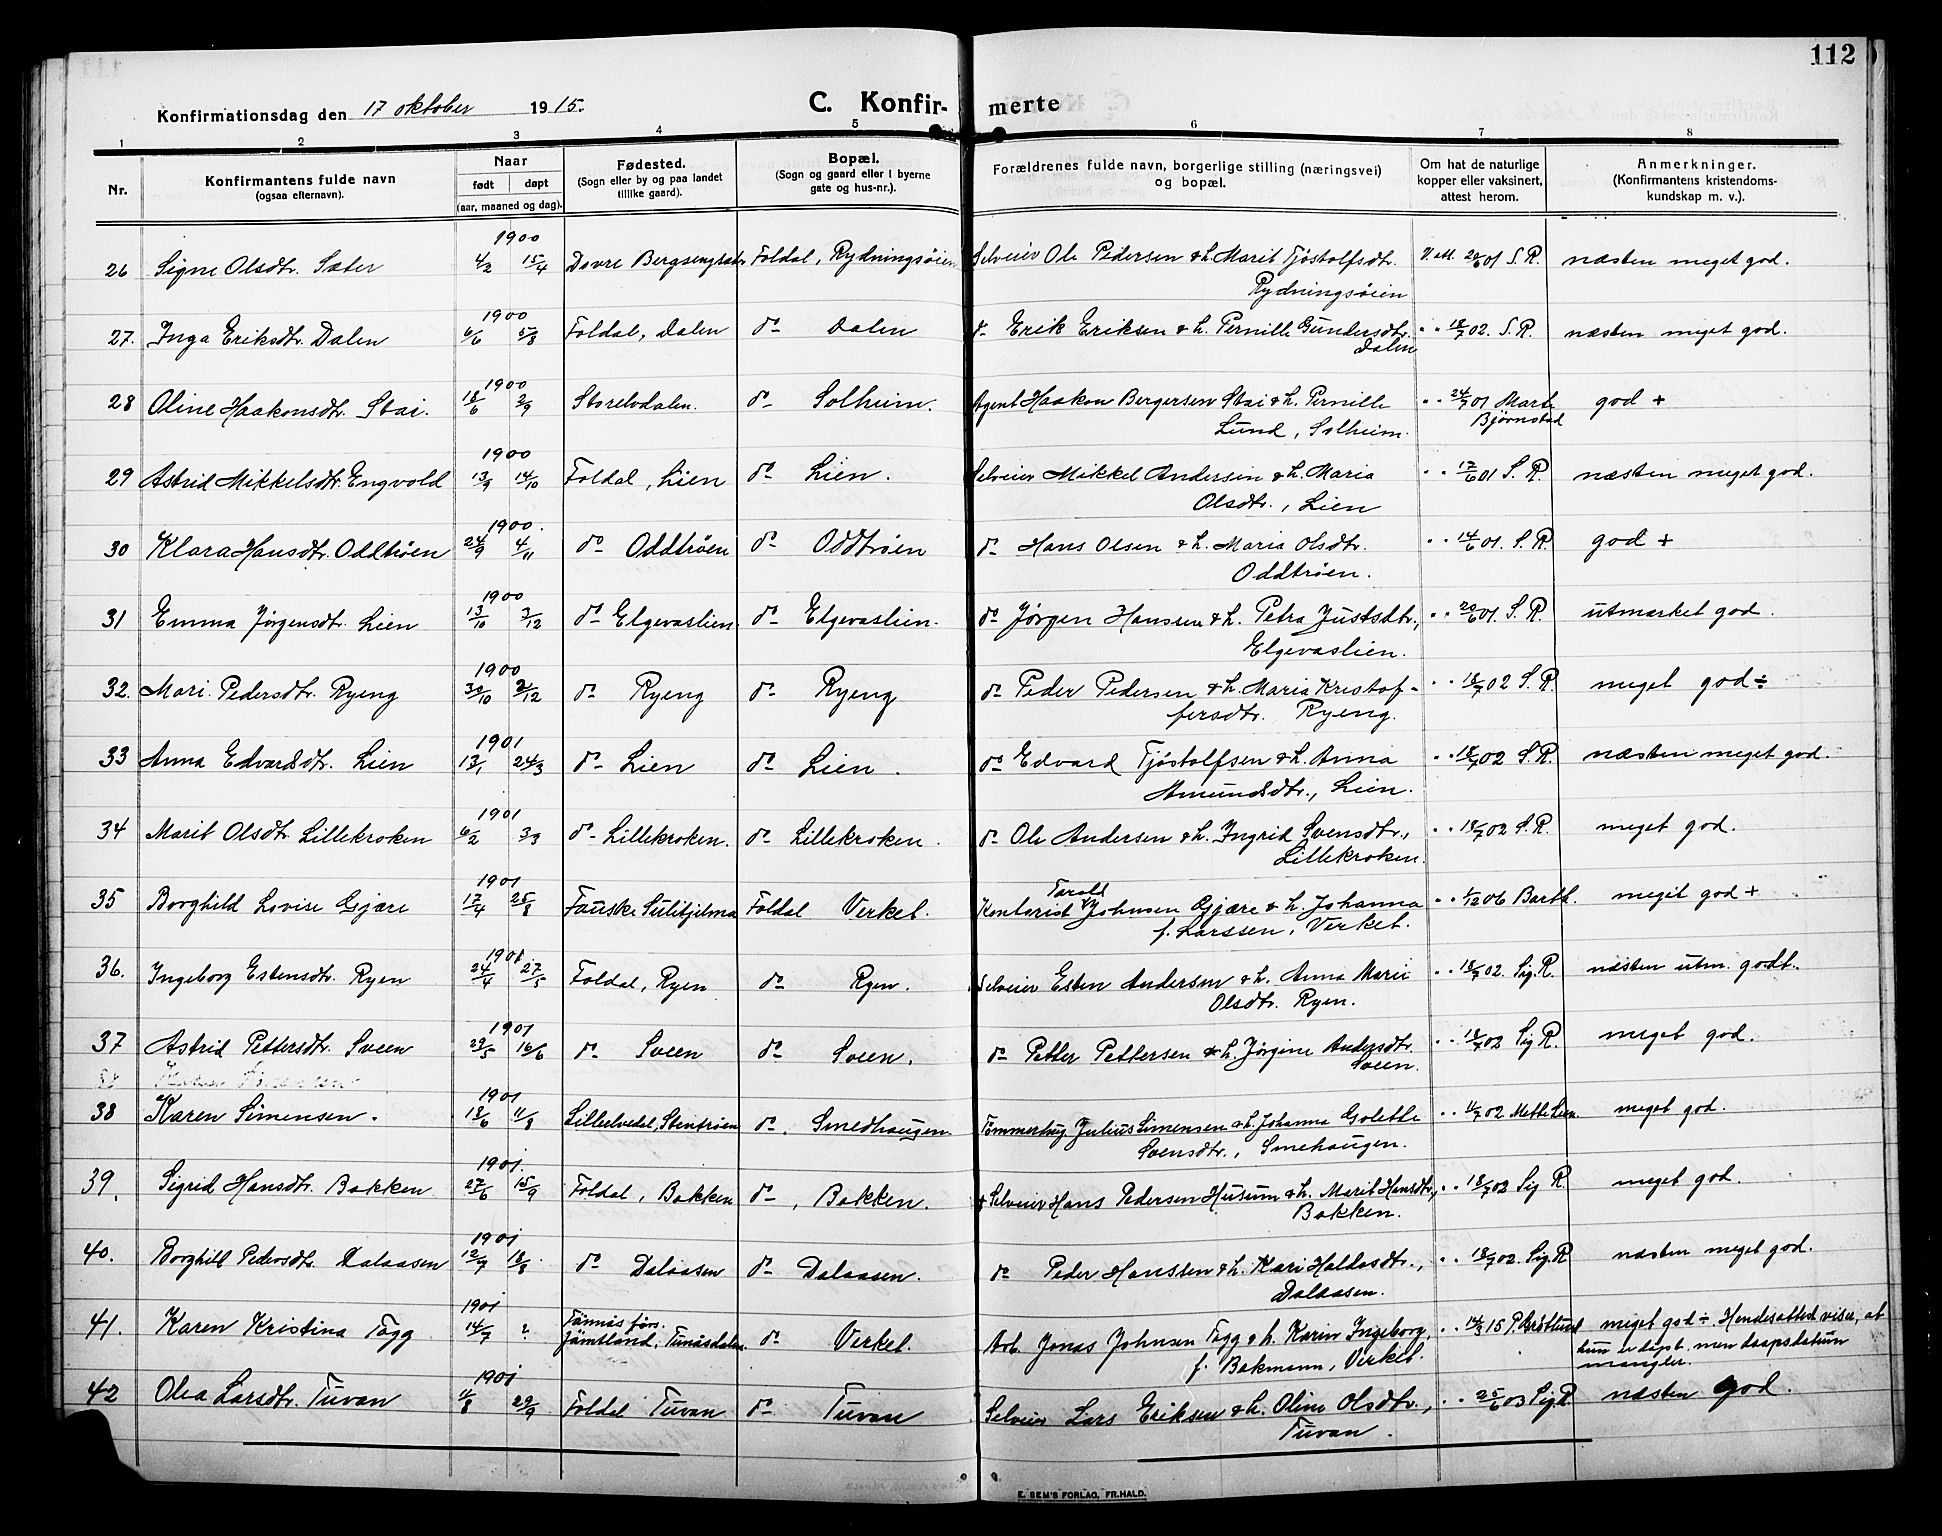 112
Konfirmationsdag den 17 oktober 1915.
C. Konfirmerte
1 2 3 4 5 6 7 8
Nr.
Konfirmantens fulde navn
(ogsaa efternavn).
Naar
født døpt
(aar, maaned og dag).
Fødested.
(Sogn eller by og paa landet
tillike gaard).
Bopæl.
(Sogn og gaard eller i byerne
gate og hus-nr.).
Forældrenes fulde navn, borgerlige stilling (næringsvei)
og bopæl.
Om hat de naturlige
kopper eller vaksinert,
attest herom.
Anmerkninger.
(Konfirmantens kristendoms-
kundskap m. v.).
1900
26 Signe Olsdtr. Sæter 4/2 15/4 Dovre Bergsengsæter Foldal, Rydningsøien Selveier Ole Pedersen & h. Marit Tjøstolfsdtr. V. M. 20/6 01 S. R. næsten meget god.
Rydningsøien
1900
27. Inga Eriksdtr. Dalen 6/6 5/8 Foldal, Dalen do Dalen do Erik Eriksen & h. Pernille Gundersdtr. " " 18/7 02. S. R. næsten meget god.
Dalen
1900
28 Oline Haakonsdtr. Stai. 18/6 2/9 Storelvdalen. do Solheim. Agent Haakon Bergersen Stai & h. Pernille " " 24/7 01 Marte god +
Lund, Solheim. Bjørnstad
1900
29 Astrid Mikkelsdtr. Engvold 13/9 14/10 Foldal, Lien do Lien. Selveier Mikkel Andersen & h. Maria " " 17/6 01 S. R. næsten meget god.
Olsdtr., Lien
1900.
30 Klara Hansdtr. Oddtrøen 24/9 4/11 do Oddtrøen do Oddtrøen do Hans Olsen & h. Maria Olsdtr. " " 14/6 01. S. R. god +
Oddtrøen.
1900
31 Emma Jørgensdtr. Lien 13/10 3/12 do Elgevaslien. do Elgevaslien. do Jørgen Hanssen & h. Petra Justsdtr., " " 20/6 01. S. R. utmerket god.
Elgevaslien.
1900
32. Mari Pedersdtr. Ryeng 30/10 2/12 do Ryeng do Ryeng do Peder Pedersen & h. Maria Kristof- " " 18/7 02 S. R. meget god ÷
fersdtr. Ryeng.
1901
33 Anna Edvardsdtr. Lien 13/1 24/3 do Lien do Lien. do Edvard Tjøstolfsen & h. Anna " " 18/7 02 S. R. næsten meget god.
Amundsdtr., Lien.
1901
34 Marit Olsdtr. Lillekroken 6/2 3/3 do Lillekroken. do Lillekroken. do Ole Andersen & h. Ingrid Svensdtr., " " 18/7 02 S. R. meget god.
Lillekroken.
1901 Tarald
35 Borghild Lovise Gjære 17/4 25/8 Fauske Sulitjelma Foldal Verket. Kontorist Johnsen Gjære & h. Johanna " " 1/12 06 Barth. meget god +
f. Larssen, Verket.
1901
36. Ingeborg Estensdtr. Ryen 24/4 27/5 Foldal, Ryen do Ryen. Selveier Esten Andersen & h. Anna Marie " " 18/7 02. Sig. R. næsten utm. godt.
Olsdtr. Ryen.
1901
37 Astrid Pettersdtr. Sveen 29/5 16/6 do Sveen do Sveen. do Petter Pettersen & h. Jørgine Andersdtr. " " 18/7 02 Sig R. meget god.
Sveen.
1901
38 Karen Simensen. 18/6 11/8 Lilleelvedal, Stentrøen do. Smedhaugen. Tømmerhug. Julius Simensen & h. Johanna Golette " " 11/7 02 Mette meget god.
Svensdtr., Smehaugen.
1901.
39. Sigrid Hansdtr. Bakken 27/6 15/9 Foldal, Bakken do, Bakken. Selveier Hans Pedersen Husum & h. Marit Hansdtr., " " 18/7 02 Sig R. meget god.
Bakken.
1901
40. Borghild Pedersdtr. Dalaasen 12/7 18/8 do Dalaasen do Dalaasen. do Peder Hanssen & h. Kari Haldosdtr., " " 18/7 02. Sig. R næsten meget god.
Dalaasen.
1901 Tännäs förs.
41. Karen Kristina Tøgg 14/7 ? Jämtland, do Verket. Arb. Jonas Johnsen Tøgg & h. Karin Ingeborg, " " 14/3 15 P. meget god ÷ Hendes attest viser, at
f. Bakmann, Verket. hun er døpt, men daapsdatum
mangler.
1901
42 Olea Larsdtr. Tuvan 4/8 29/9 Foldal Tuvan do Tuvan Selveier Lars Eriksen & h. Oline Olsdtr., " " 25/6 03 Sig. R. næsten god.
Tuvan.
E. SEM'S FORLAG, FR.HALD.